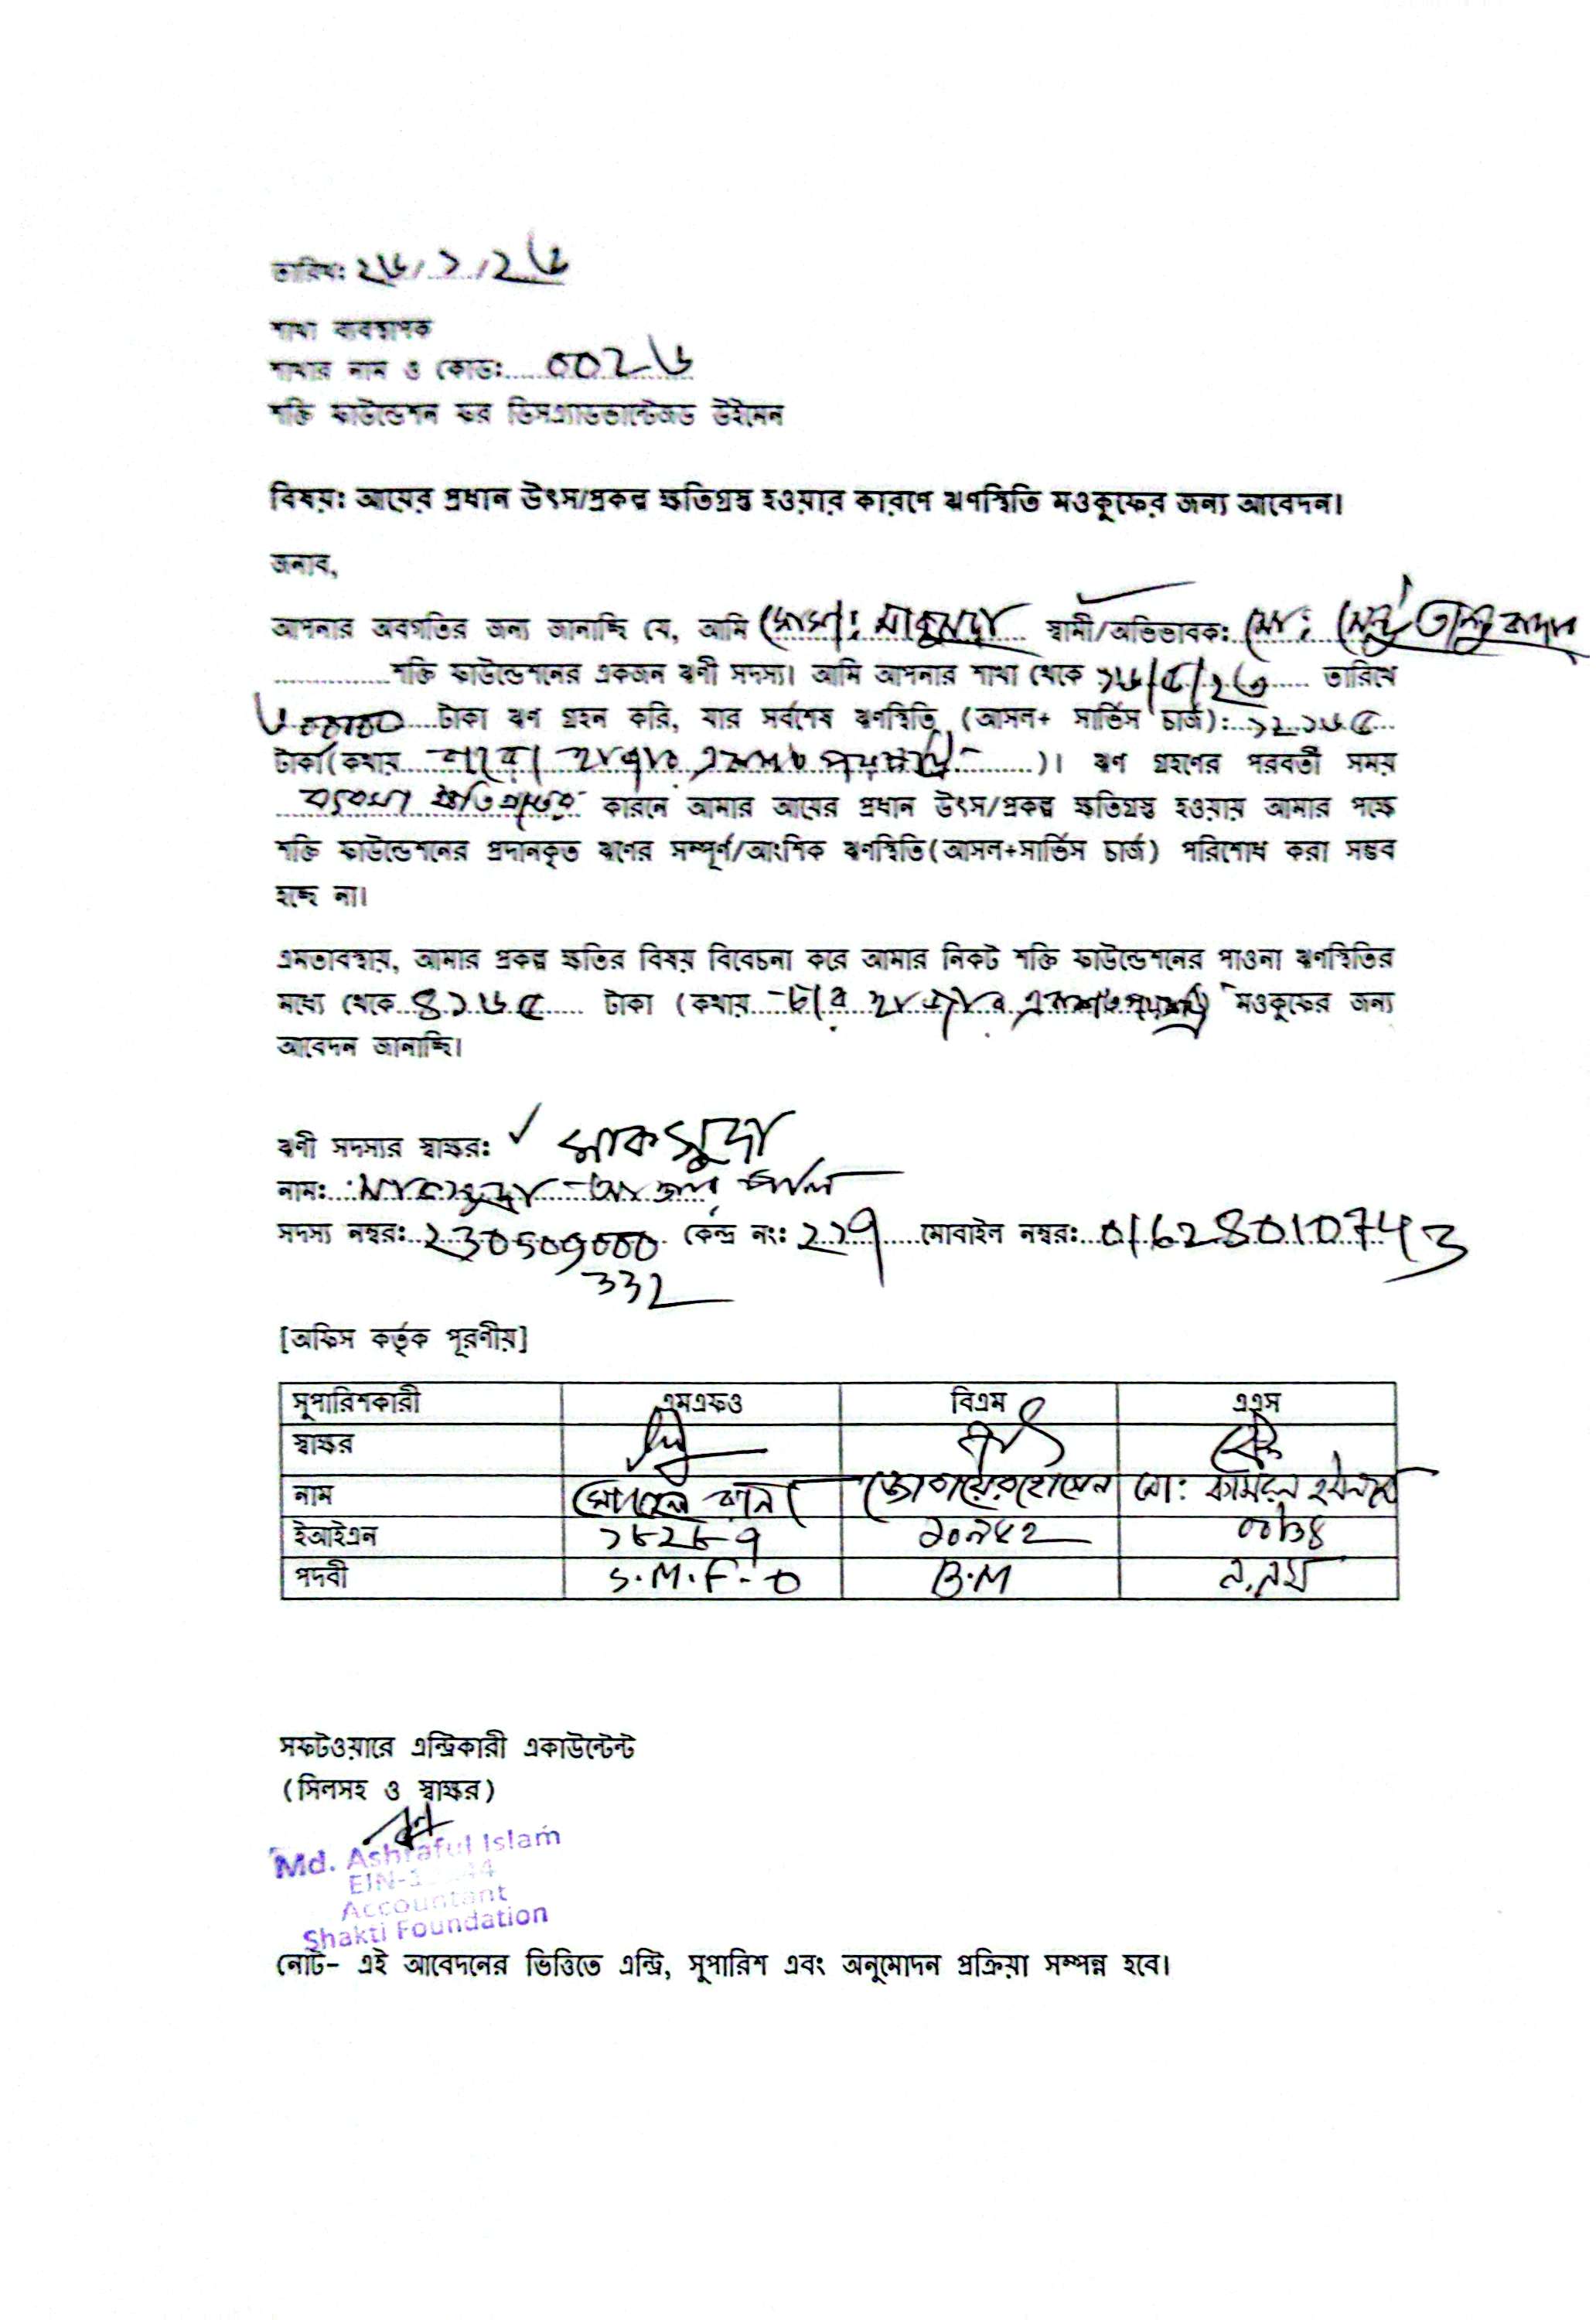 তারিখঃ ২৬/১/২৬
শাখা ব্যবস্থাপক
শাখার নাম ও কোডঃ 002৬
শক্তি ফাউন্ডেশন ফর ডিসএ্যাডভান্টেজড উইমেন
বিষয়ঃ আয়ের প্রধান উৎস/প্রকল্প ক্ষতিগ্রস্ত হওয়ার কারণে ঋণস্থিতি মওকুফের জন্য আবেদন।
জনাব,
আপনার অবগতির জন্য জানাচ্ছি যে, আমি মোসা: মাকসুদা স্বামী/অভিভাবকঃ মো:
শক্তি ফাউন্ডেশনের একজন ঋণী সদস্য। আমি আপনার শাখা থেকে ১৬/৫/২৩ তারিখে
৬০০০০ টাকা ঋণ গ্রহন করি, যার সর্বশেষ ঋণস্থিতি (আসল+ সার্ভিস চার্জ)ঃ ১২১৬৫
টাকা(কথায় বারো হাজার একশত পয়ষট্টি)। ঋণ গ্রহণের পরবর্তী সময়
ব্যবসা ক্ষতিগ্রস্তের কারনে আমার আয়ের প্রধান উৎস/প্রকল্প ক্ষতিগ্রস্ত হওয়ায় আমার পক্ষে
শক্তি ফাউন্ডেশনের প্রদানকৃত ঋণের সম্পূর্ণ/আংশিক ঋণস্থিতি(আসল+সার্ভিস চার্জ) পরিশোধ করা সম্ভব
হচ্ছে না।
এমতাবস্থায়, আমার প্রকল্প ক্ষতির বিষয় বিবেচনা করে আমার নিকট শক্তি ফাউন্ডেশনের পাওনা ঋণস্থিতির
মধ্যে থেকে ৪১৬৫ টাকা (কথায় চার হাজার একশত পয়ষট্টি মওকুফের জন্য
আবেদন জানাচ্ছি।
ঋণী সদস্যর স্বাক্ষরঃ ✓ মাকসুদা
নামঃ মাকসুদা
সদস্য নম্বরঃ 230509000 কেন্দ্র নংঃ 229 মোবাইল নম্বরঃ 01628010743
332
[অফিস কর্তৃক পূরণীয়]
সুপারিশকারী এমএফও বিএম এএস
স্বাক্ষর
নাম সোহেল রানা জোবায়ের হোসেন মো:
ইআইএন ১৮২৮৭
পদবী S.M.F.O B.M
সফটওয়ারে এন্ট্রিকারী একাউন্টেন্ট
(সিলসহ ও স্বাক্ষর)
Md. Ashraful Islam
Accountant
Shakti Foundation
নোট- এই আবেদনের ভিত্তিতে এন্ট্রি, সুপারিশ এবং অনুমোদন প্রক্রিয়া সম্পন্ন হবে।